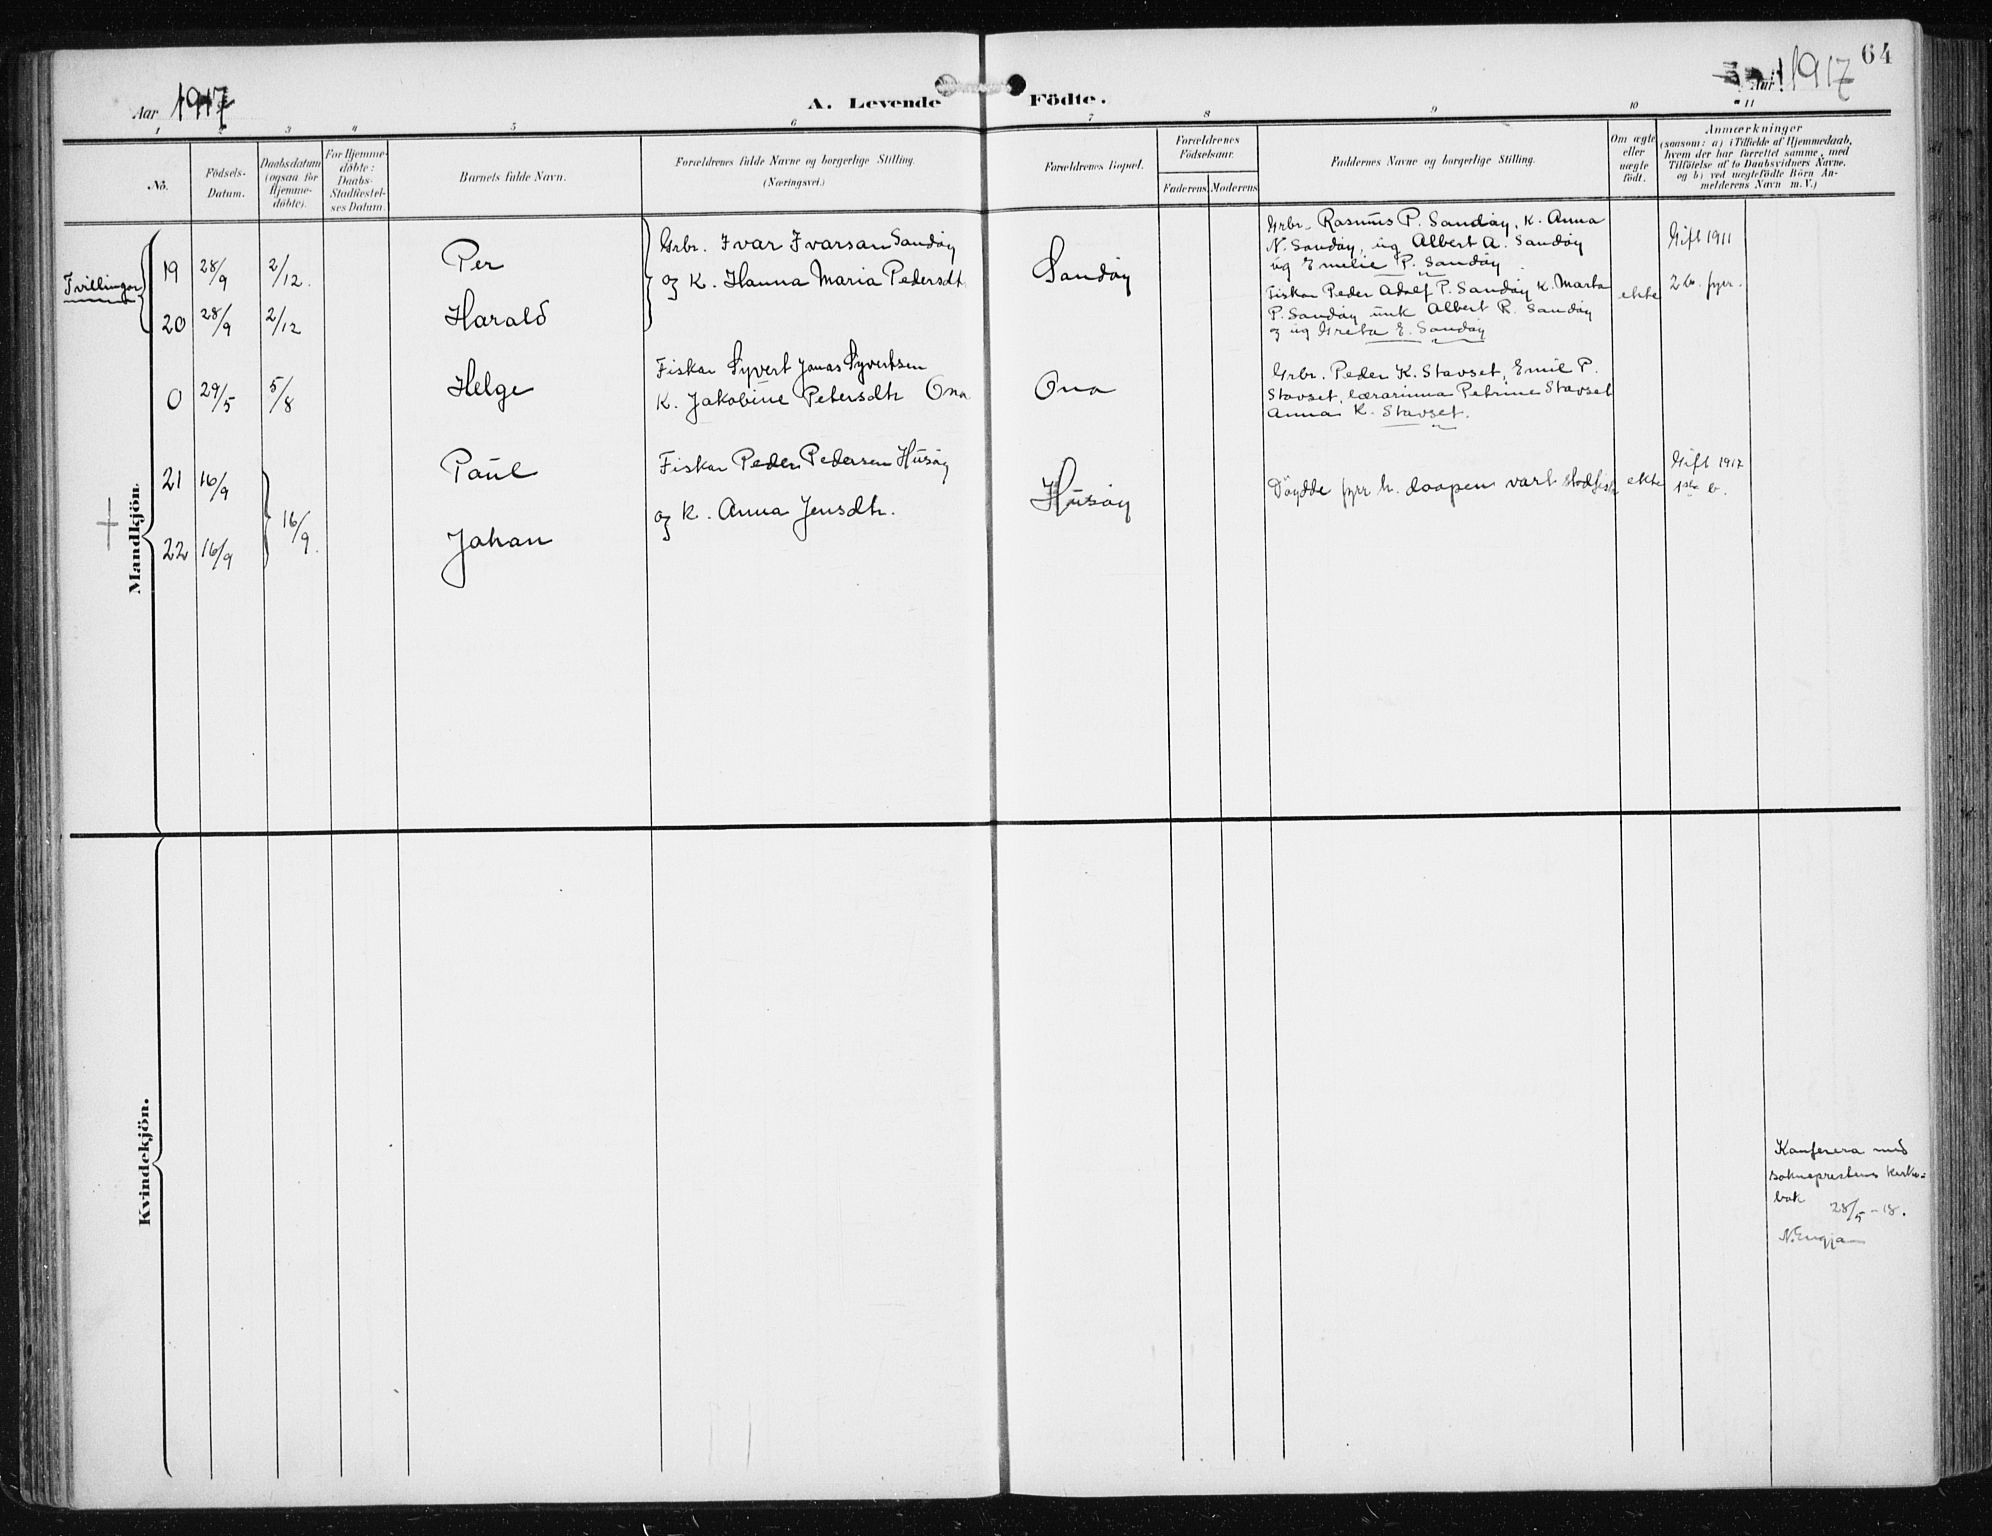 64
Aar 1917
A. Levende Födte.
Aar 1917
1 2 3 4 5 6 7 8 9 10 11
No.
Födsels-
Datum.
Daabsdatum
(ogsaa for
Hjemme-
döbte).
For Hjemme-
döbte:
Daabs-
Stadfæstel-
ses Datum.
Barnets fulde Navn.
Forældrenes fulde Navne og borgerlige Stilling.
(Næringsvei.)
Forældrenes Bopæl.
Forældrenes
Födselsaar.
Faderens. Moderens.
Faddernes Navne og borgerlige Stilling.
Om ægte
eller
uægte
födt.
Anmærkninger
(saasom: a) i Tilfælde af Hjemmedaab,
hvem der har forrettet samme, med
Tilföielse af to Daabsvidners Navne,
og b) ved uægtefödte Börn An-
melderens Navn m. V.)
Mandkjön.
Tvillingar
19 28/9 2/12. Per
20 28/9 2/12 Harald
Grbr. Ivar Ivarsan Sandøy
og K. Hanna Maria Pedersdtr.
Sandøy
Grbr. Rasmus P. Sandøy, K. Anna
N. Sandøy, ug Albert A. Sandøy
ug Emelie P. Sandøy
Fiskar Peder Adolf P. Sandøy K. Marta
P. Sandøy unk Albert R. Sandøy
og ug Greta E. Sandøy
ekte
Gift 1911
2 b. fyrr.
0 29/5 5/8 Helge
Fiskar Syvert Jonas Syvertsen
K. Jakobine Petersdtr Ona
Ona
Grbr. Peder K. Stavset, Emil P.
Stavset, lærarinna Petrine Stavset
Anna K. Stavset.
21 16/9 Paul
22 16/9 16/9. Johan
Fiskar Peder Pedersen Husøy
og K. Anna Jensdtr.
Husøy
Döydde fyrr h. daapen vart stadfest
ekte
Gift 1917
1ste b.
Kvindekjön.
Konferera med
sokneprestens kirke-
bok
28/5 - 18.
N. Engja